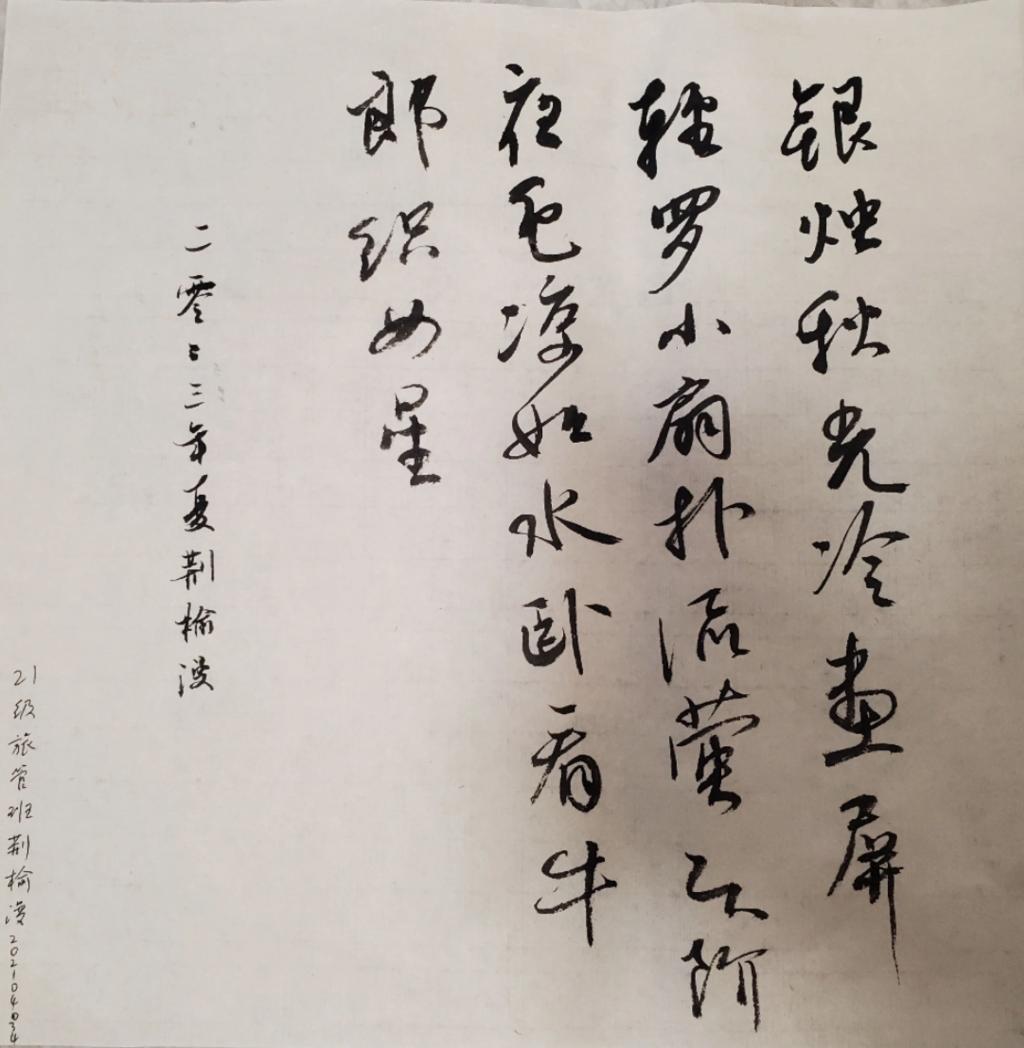 银烛秋光冷畫屏
轻罗小扇扑流萤天阶
夜色凉如水卧看牛
郎织女星
二零二三年夏荆榆
21级旅管班荆榆 202104034